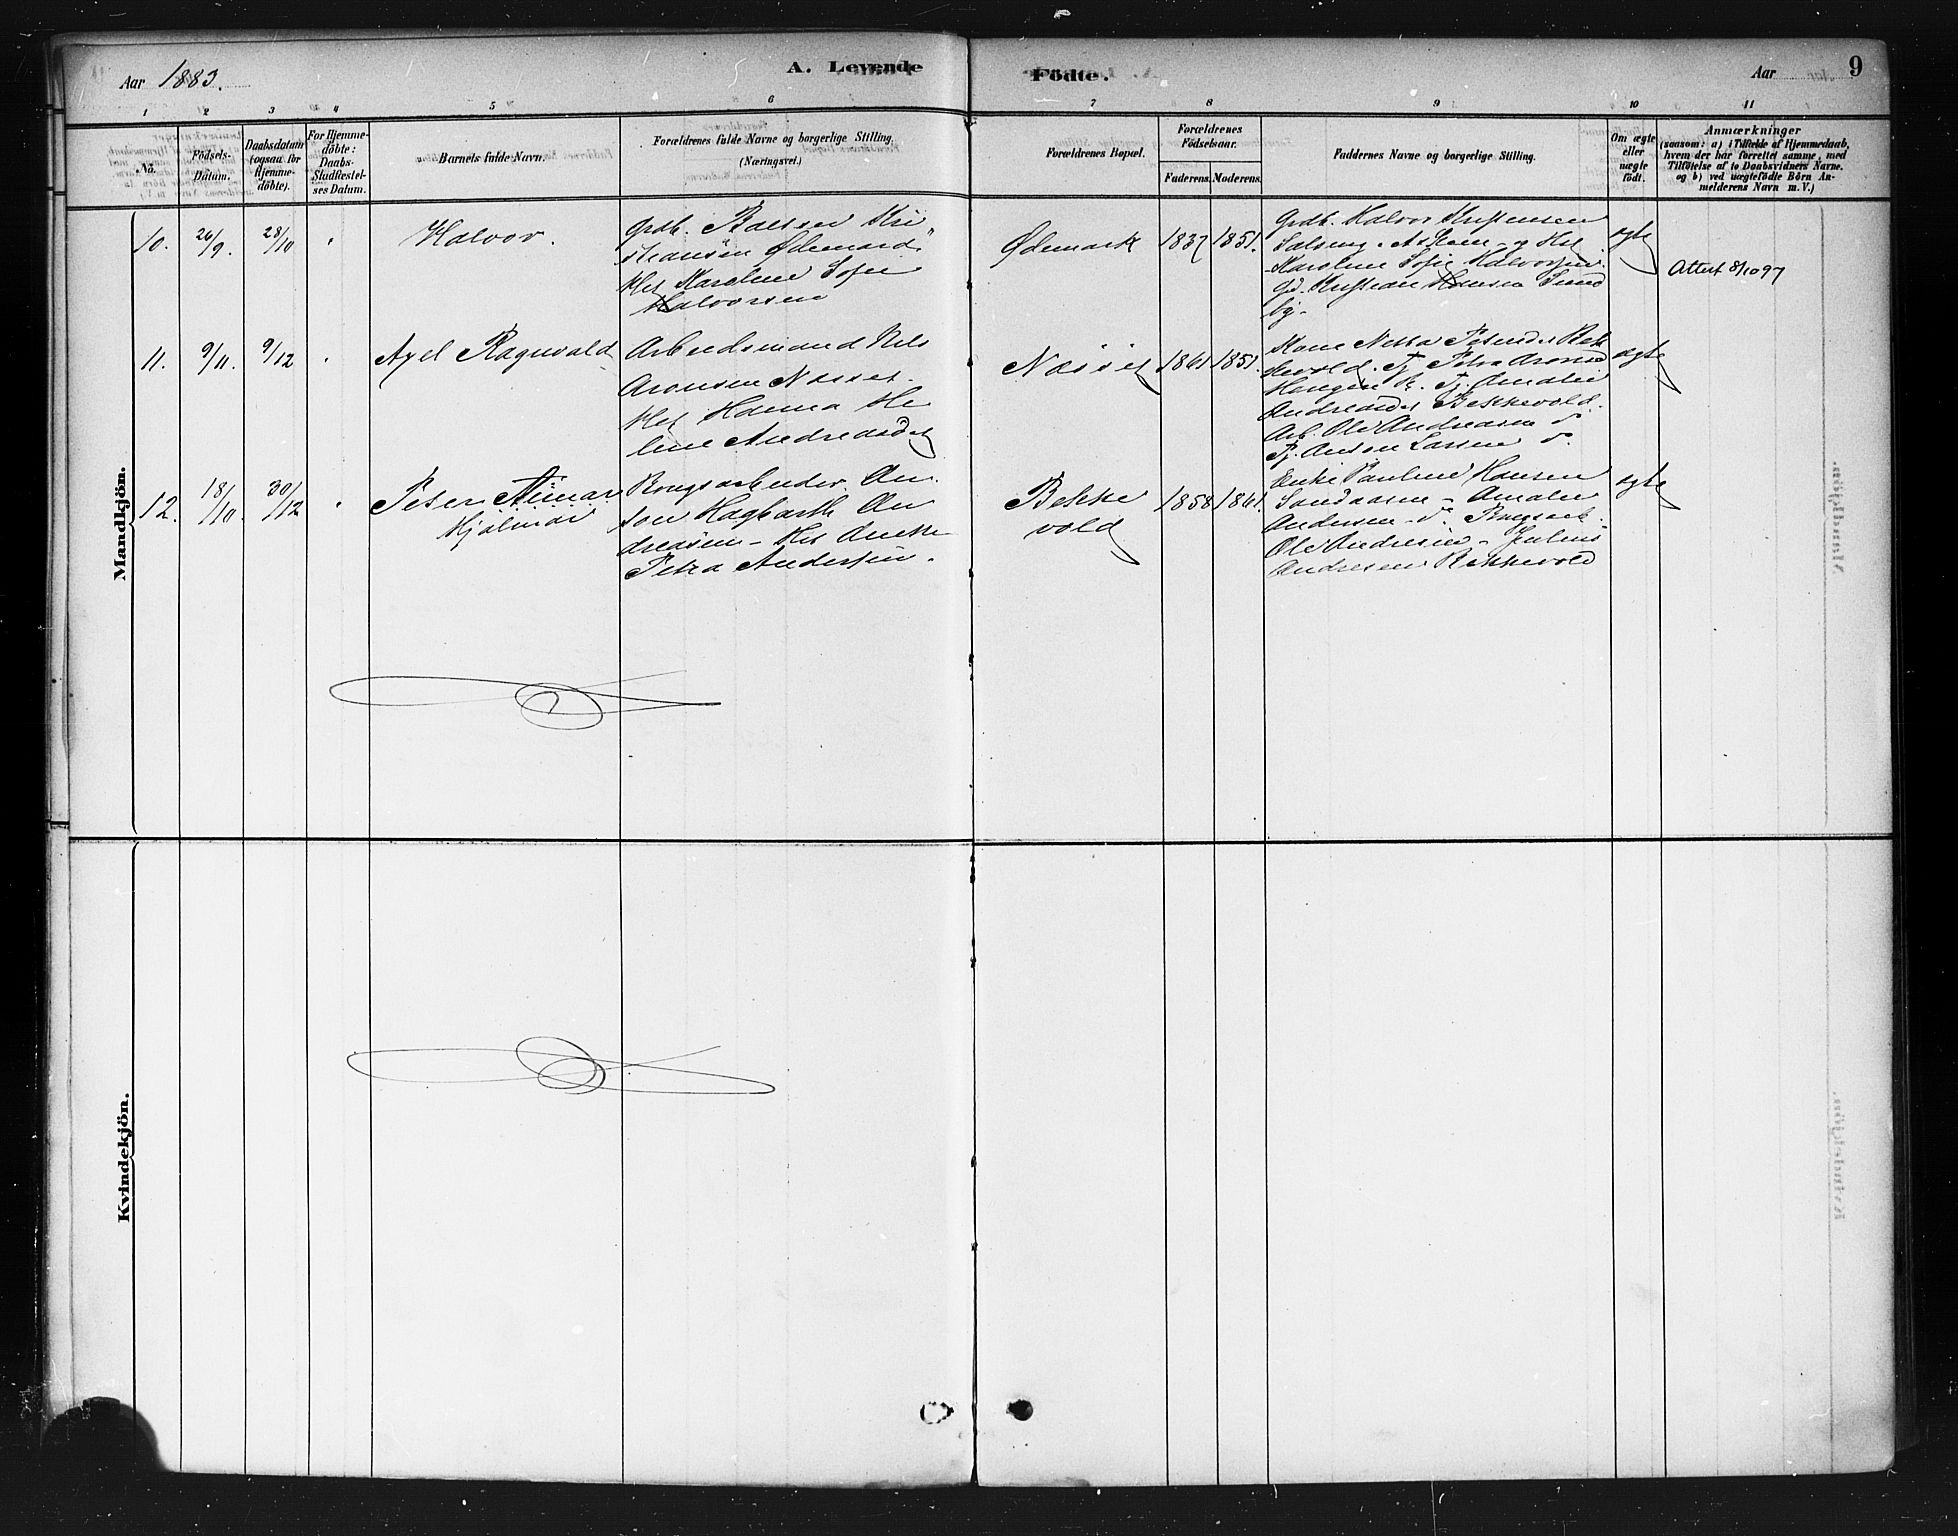 Aar 1883.
A. Levende
Födte.
Aar
9
1 2 3 4 5 6 7 8 9 10 11
No.
Födsels-
Datum.
Daabsdatum
(ogsaa for
Hjemme-
döbte).
For Hjemme-
döbte:
Daabs-
Stadfæstel-
ses Datum.
Barnets fulde Navn.
Forældrenes fulde Navne og borgerlige Stilling.
(Næringsvei.)
Forældrenes Bopæl.
Forældrenes
Födselsaar.
Faderens.
Moderens.
Faddernes Navne og borgerlige Stilling.
Om ægte
eller
uægte
födt.
Anmærkninger
(saasom: a) i Tilfælde af Hjemmedaab,
hvem der har forrettet samme, med
Tilföielse af to Daabsvidners Navne.
og b) ved uægtefödte Börn An-
melderens Navn m. V.)
Mandkjön.
10.
26/9.
28/10
"
Halvor.
Grdb. Baltser Kri
stiansen Ødemark
Hst Karoline Sofie
Halvorsen
Ødemark
1837
1851.
Grdb. Halvor Kristensen
Karoline Sofie Halvorsen.
Gd. Kristian Hansen Sund
by.
ægte
Attest 8/10 97
11.
9/11.
9/12
"
Axel Ragnvald
Arbeidsmand Nils
Aronsen Næsset.
Hst Hanna He
line Andreasdet
Næsset
1861
1851.
Kone Netta Petersdet Bek
kevold. Pj. Petra Arons
Haugen Pj. Amalie
Andreasdet Bekkevold.
Arb. Ole Andreasen do
Pj. Anton Larsen do.
ægte
12.
18/10.
30/12
"
Peter Aimar
Hjalmar
Brugsarbeider An
ton Hagbarth An
dreasen - Hst Anette
Petra Andersen.
Bekke
vold
1858
1861.
Enke Pauline Hansen
Sandaasen - Amalie
Andersen - do. Brugsarb.
Ole Andresen - Julius
Andresen Bekkevold
ægte
Kvindekjön.